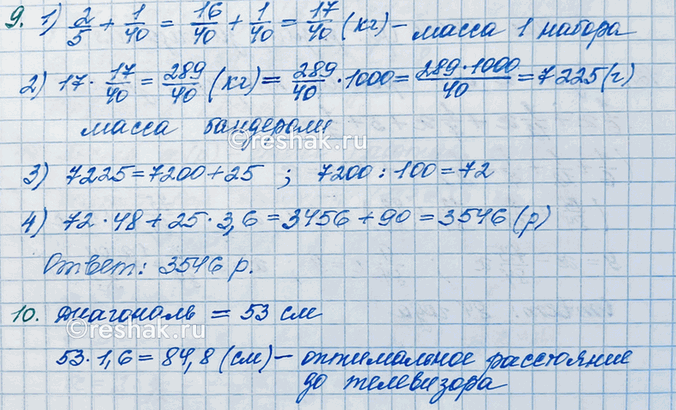 9. 1) 2/5 + 1/40 = 16/40 + 1/40 = 17/40 (кг) – масса 1 набора
2) 17 · 17/40 = 289/40 (кг) = 289/40 · 1000 = 289·1000/40 = 7225 (г)
масса бандероли
reshak.ru
3) 7225 = 7200 + 25 ; 7200 : 100 = 72
4) 72 · 48 + 25 · 3,6 = 3456 + 90 = 3546 (р)
Ответ: 3546 р.
10. Диагональ = 53 см
reshak.ru
53 · 1,6 = 84,8 (см) – оптимальное расстояние
до телевизора